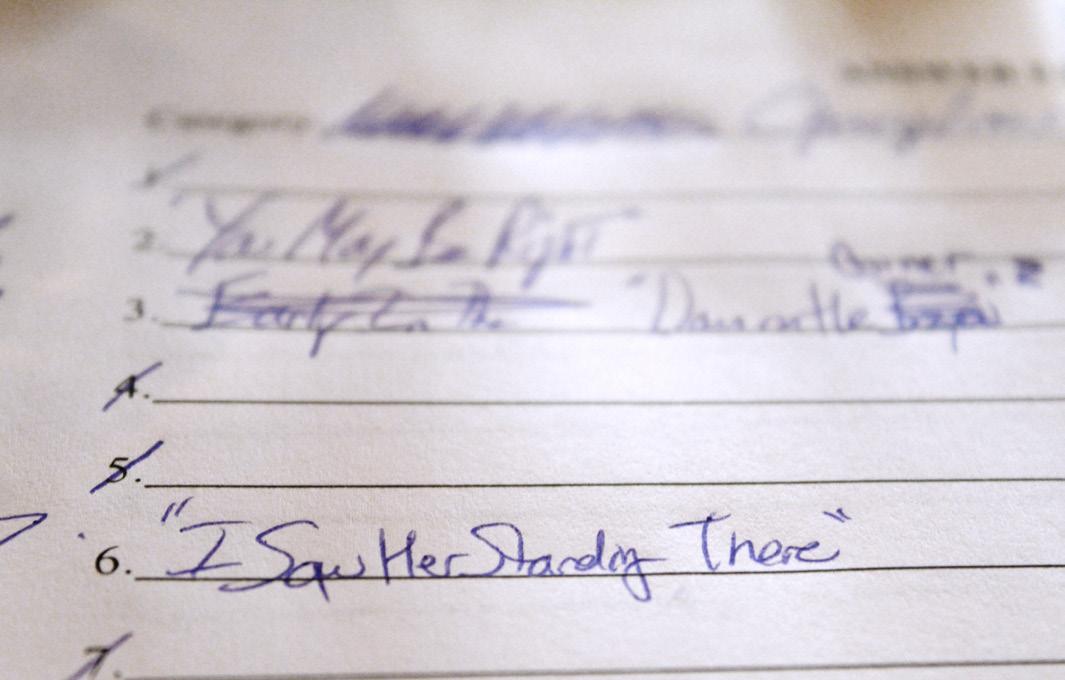 Category
1.
2. "You May Be Right"
3. Early In The "Down on the Corner"
4.
5.
6. "I Saw Her Standing There"
7.